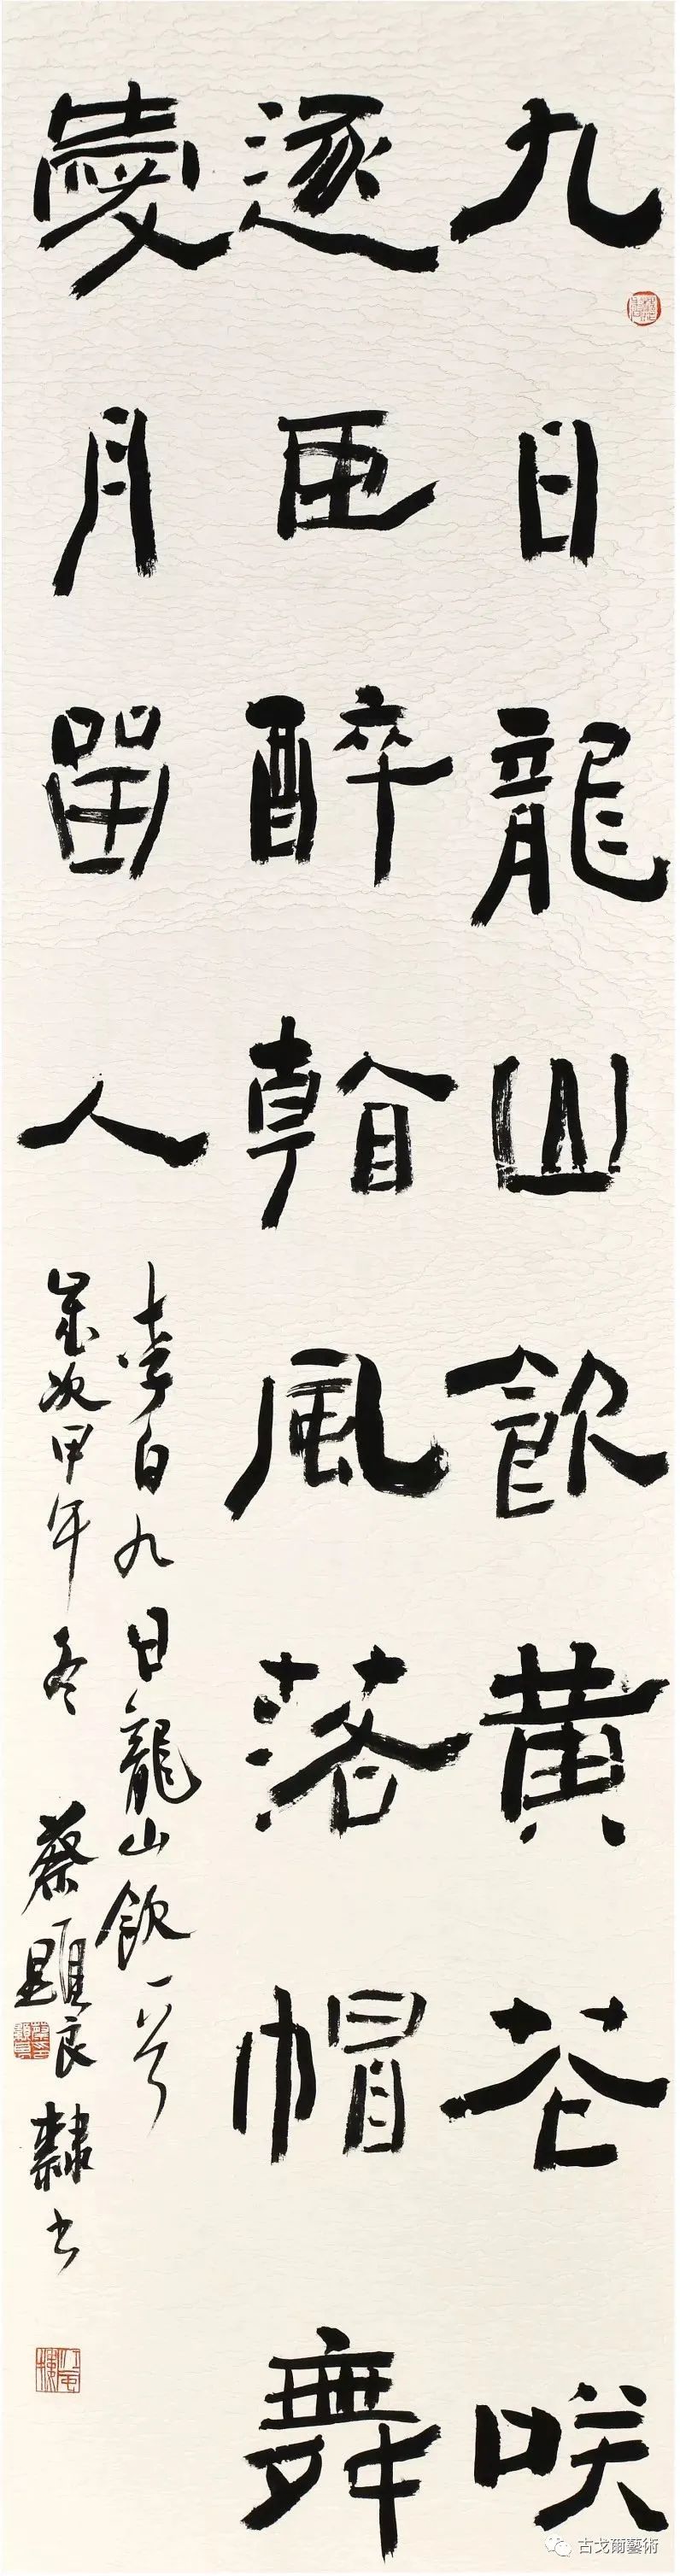 九日龍山飲黃花咲
逐臣醉看風落帽舞
愛月留人
李白九日龍山飲一首
歲次甲午冬 蔡顯良隸書
古戈爾藝術